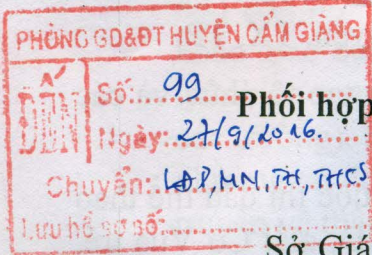 PHÒNG GD&ĐT HUYỆN CẨM GIÀNG
ĐẾN
Số: 99
Ngày: 27/9/2016.
Chuyển: MN, TH, THCS
Lưu hồ sơ số:
Phối hợp
Sở Giá